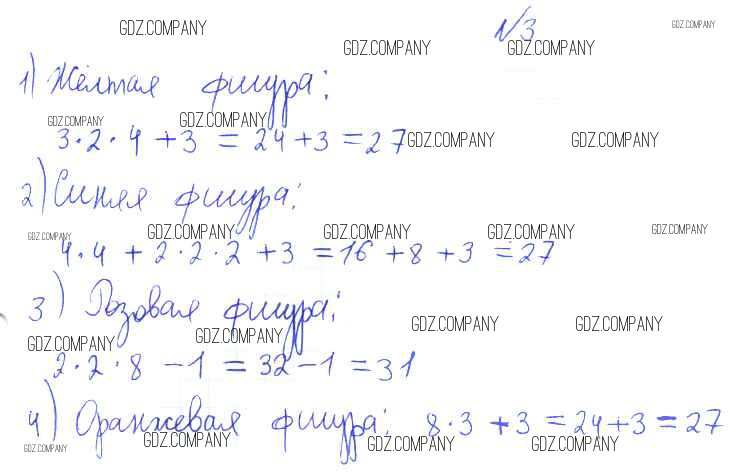 GDZ.COMPANY
№3
GDZ.COMPANY
GDZ.COMPANY GDZ.COMPANY
1) Жёлтая фигура:
GDZ.COMPANY GDZ.COMPANY
3·2·4 + 3 = 24 + 3 = 27
GDZ.COMPANY GDZ.COMPANY
2) Синяя фигура:
GDZ.COMPANY GDZ.COMPANY GDZ.COMPANY GDZ.COMPANY GDZ.COMPANY
4·4 + 2·2·2 + 3 = 16 + 8 + 3 = 27
3) Розовая фигура:
GDZ.COMPANY GDZ.COMPANY GDZ.COMPANY GDZ.COMPANY
2·2·8 - 1 = 32 - 1 = 31
4) Оранжевая фигура: 8·3 + 3 = 24 + 3 = 27
GDZ.COMPANY GDZ.COMPANY GDZ.COMPANY GDZ.COMPANY